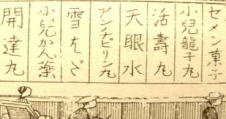 セメン菓子
小兒龍子丸
活壽丸
天眼水
アンチピリン丸
小兒かん藥
開達丸